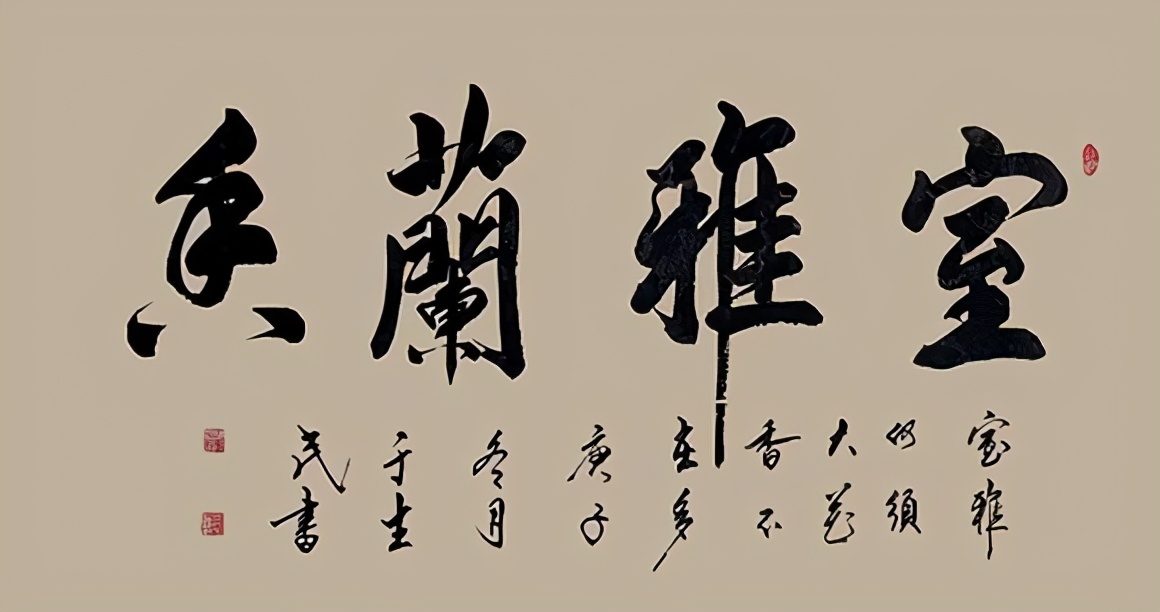 室雅蘭香
室雅
何須
大花
香不
在多
庚子
冬月
于生
茂書